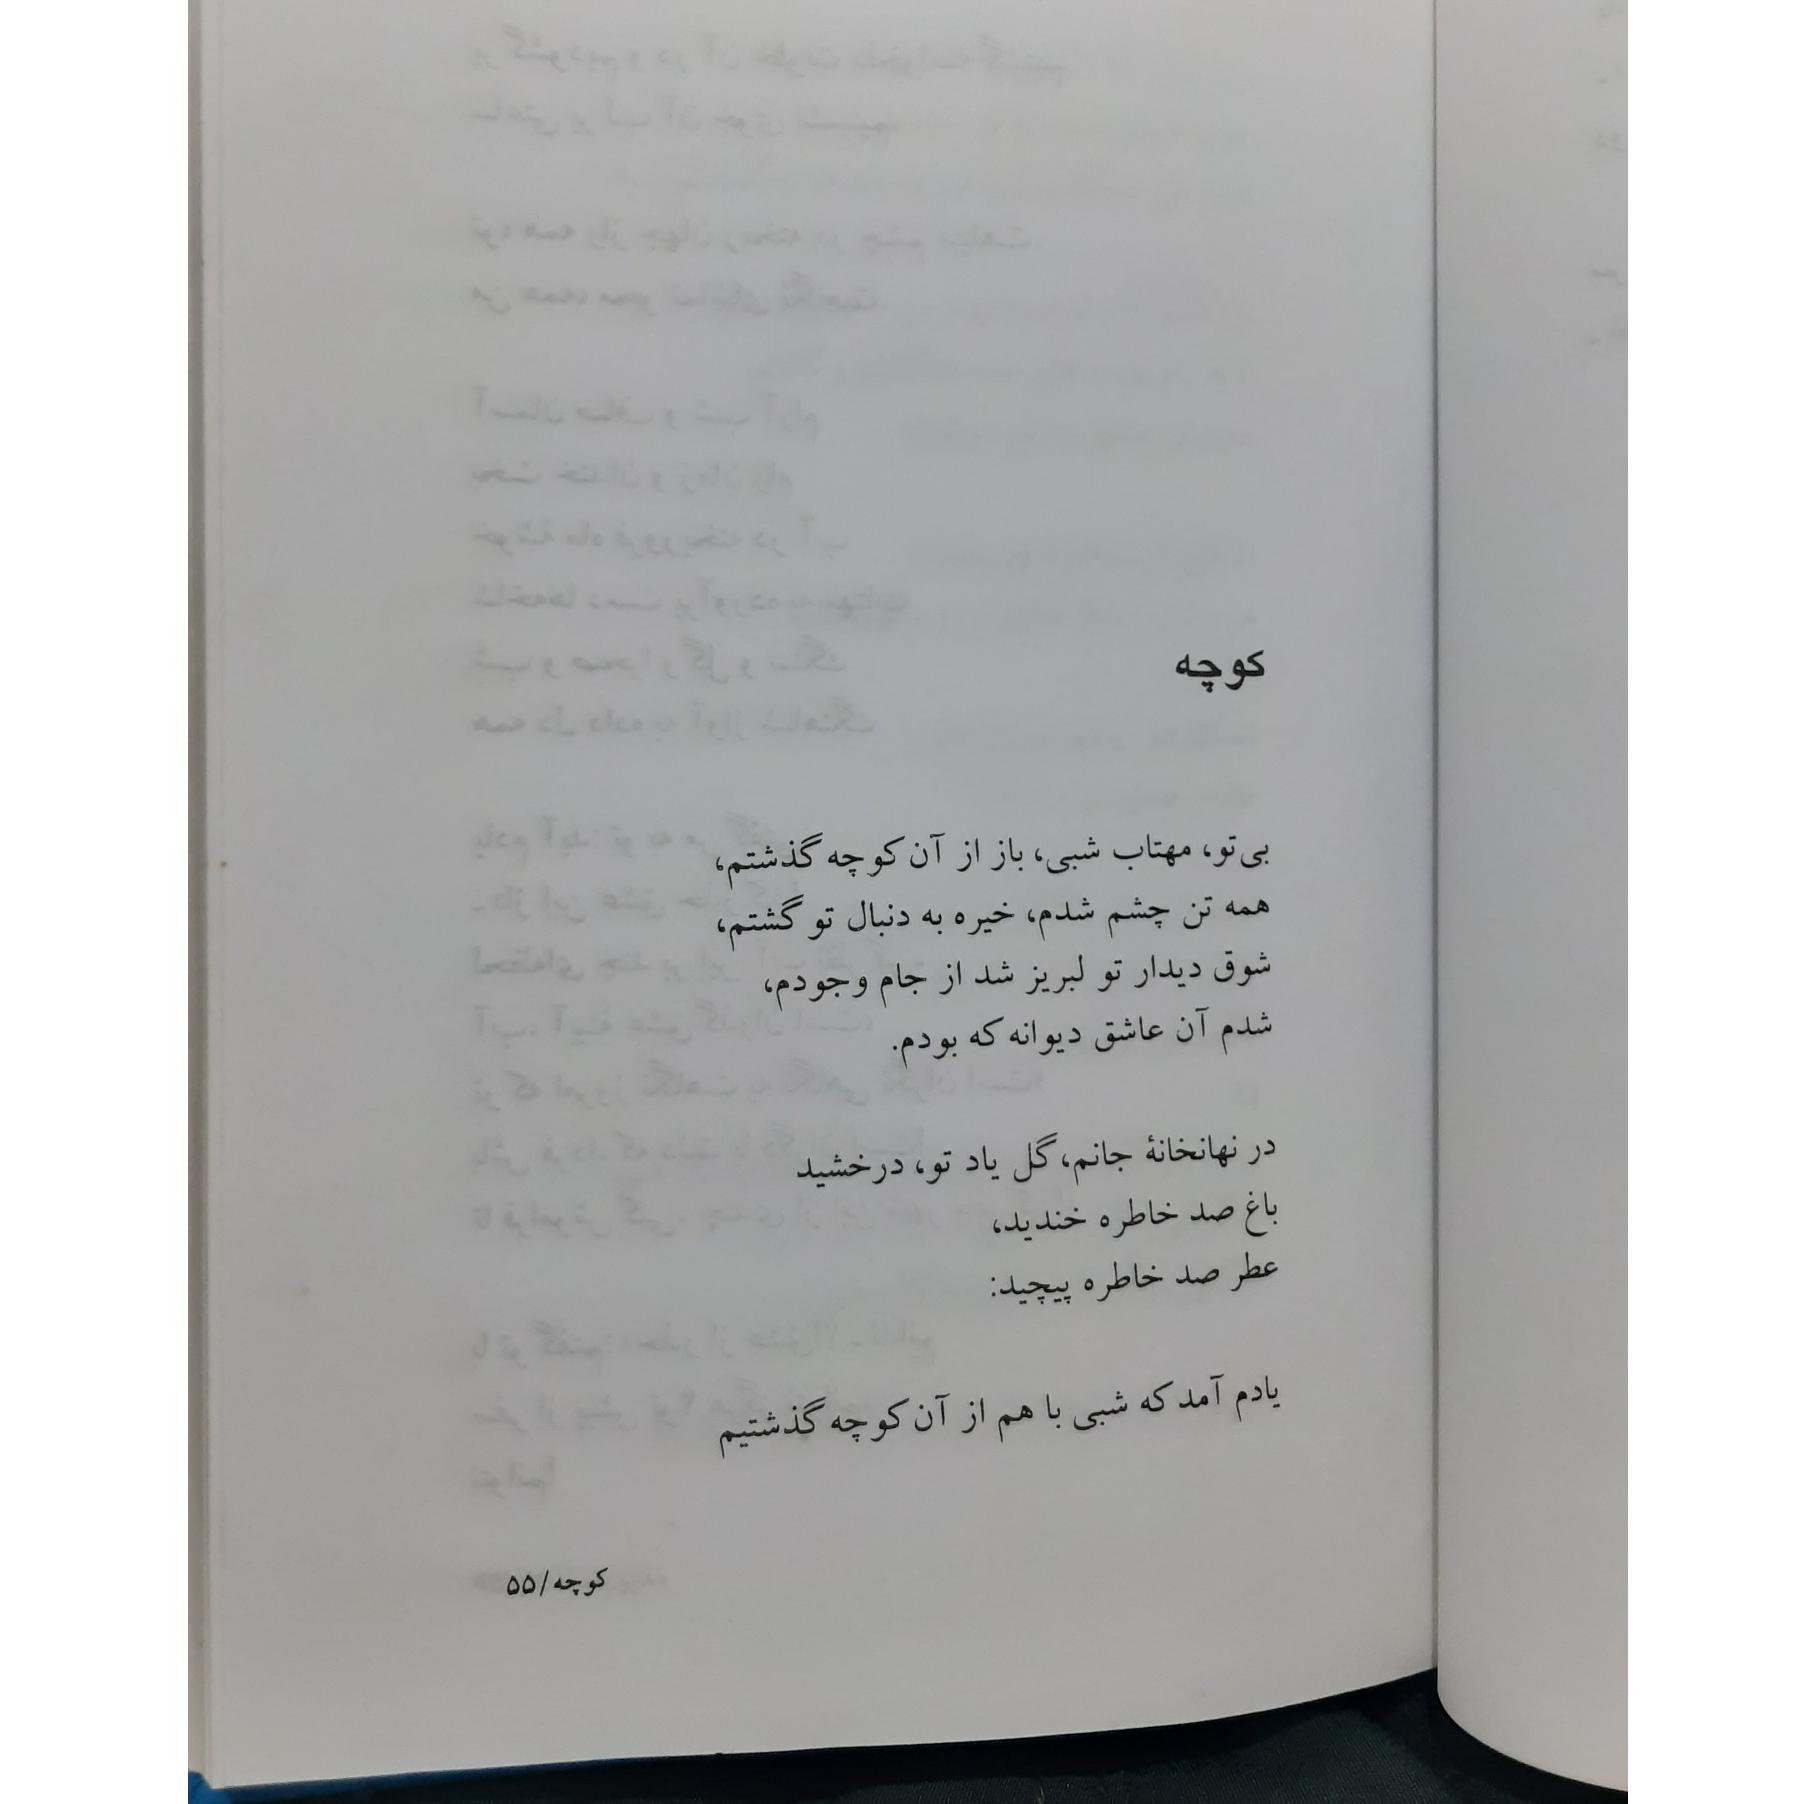 کوچه
بی‌تو، مهتاب شبی، باز از آن کوچه گذشتم،
همه تن چشم شدم، خیره به دنبال تو گشتم،
شوق دیدار تو لبریز شد از جام وجودم،
شدم آن عاشق دیوانه که بودم.
در نهانخانهٔ جانم، گل یاد تو، درخشید
باغ صد خاطره خندید،
عطر صد خاطره پیچید:
یادم آمد که شبی با هم از آن کوچه گذشتیم
کوچه/۵۵